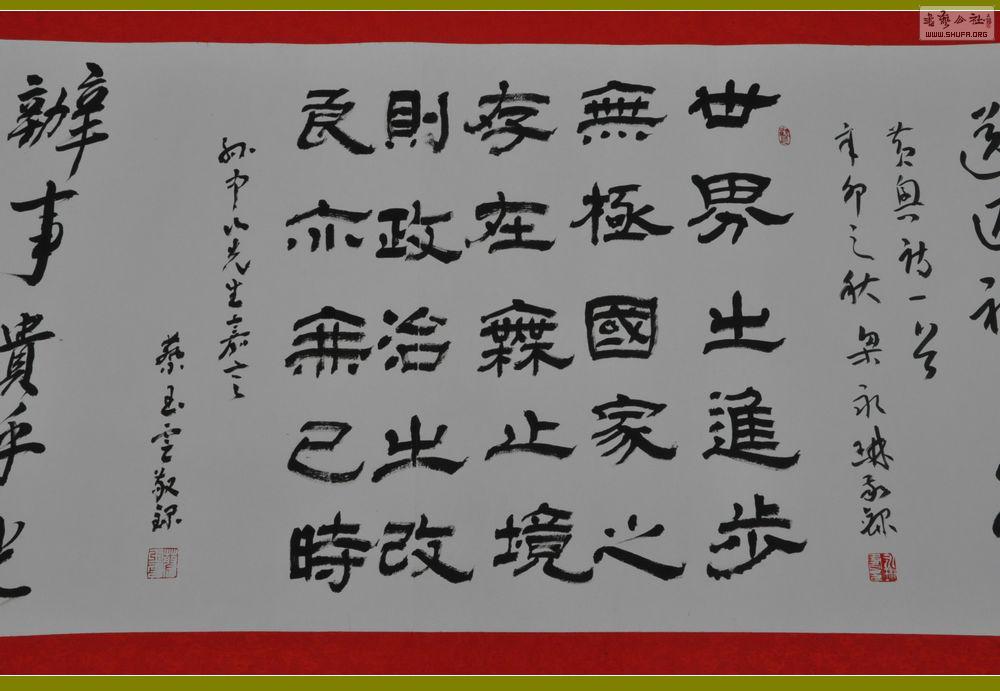 黄興詩一首
辛卯之秋 梁永琳敬錄
世界之進步
無極國家之
存在無止境
則政治之改
良亦無已時
孫中山先生嘉言
蔡玉雲敬錄
辦事貴乎
书艺公社
WWW.SHUFA.ORG